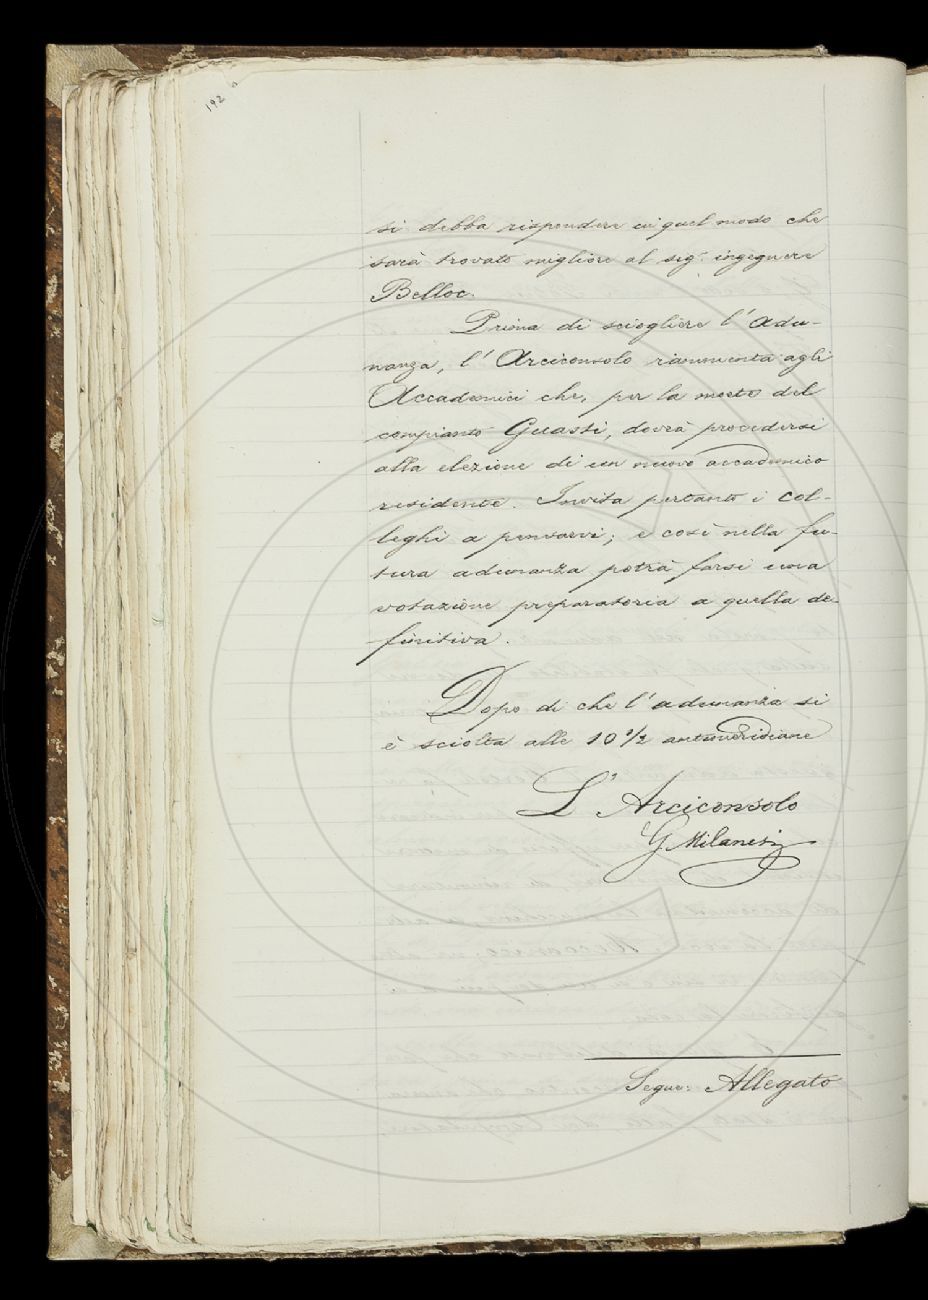 192
si debba rispondere in quel modo che
sarà trovato migliore al sig.r ingegnere
Belloc.
Prima di sciogliere l'Adu-
nanza, l'Arciconsolo rammenta agli
Accademici che, per la morte del
compianto Guasti, dovrà procedersi
alla elezione di un nuovo accademico
residente. Invita pertanto i col-
leghi a pensarvi; e così nella fu-
tura adunanza potrà farsi una
votazione preparatoria a quella de-
finitiva.
Dopo di che l'adunanza si
è sciolta alle 10 1/2 antimeridiane
L'Arciconsolo
G Milanesi
Segue: Allegato